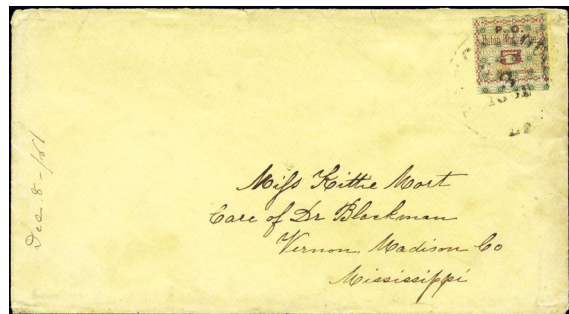 P. O.
5
La
Dec 8 - /61
Miſs Kittie Mort
Care of Dr Blackman
Vernon Madison Co
Mississippi